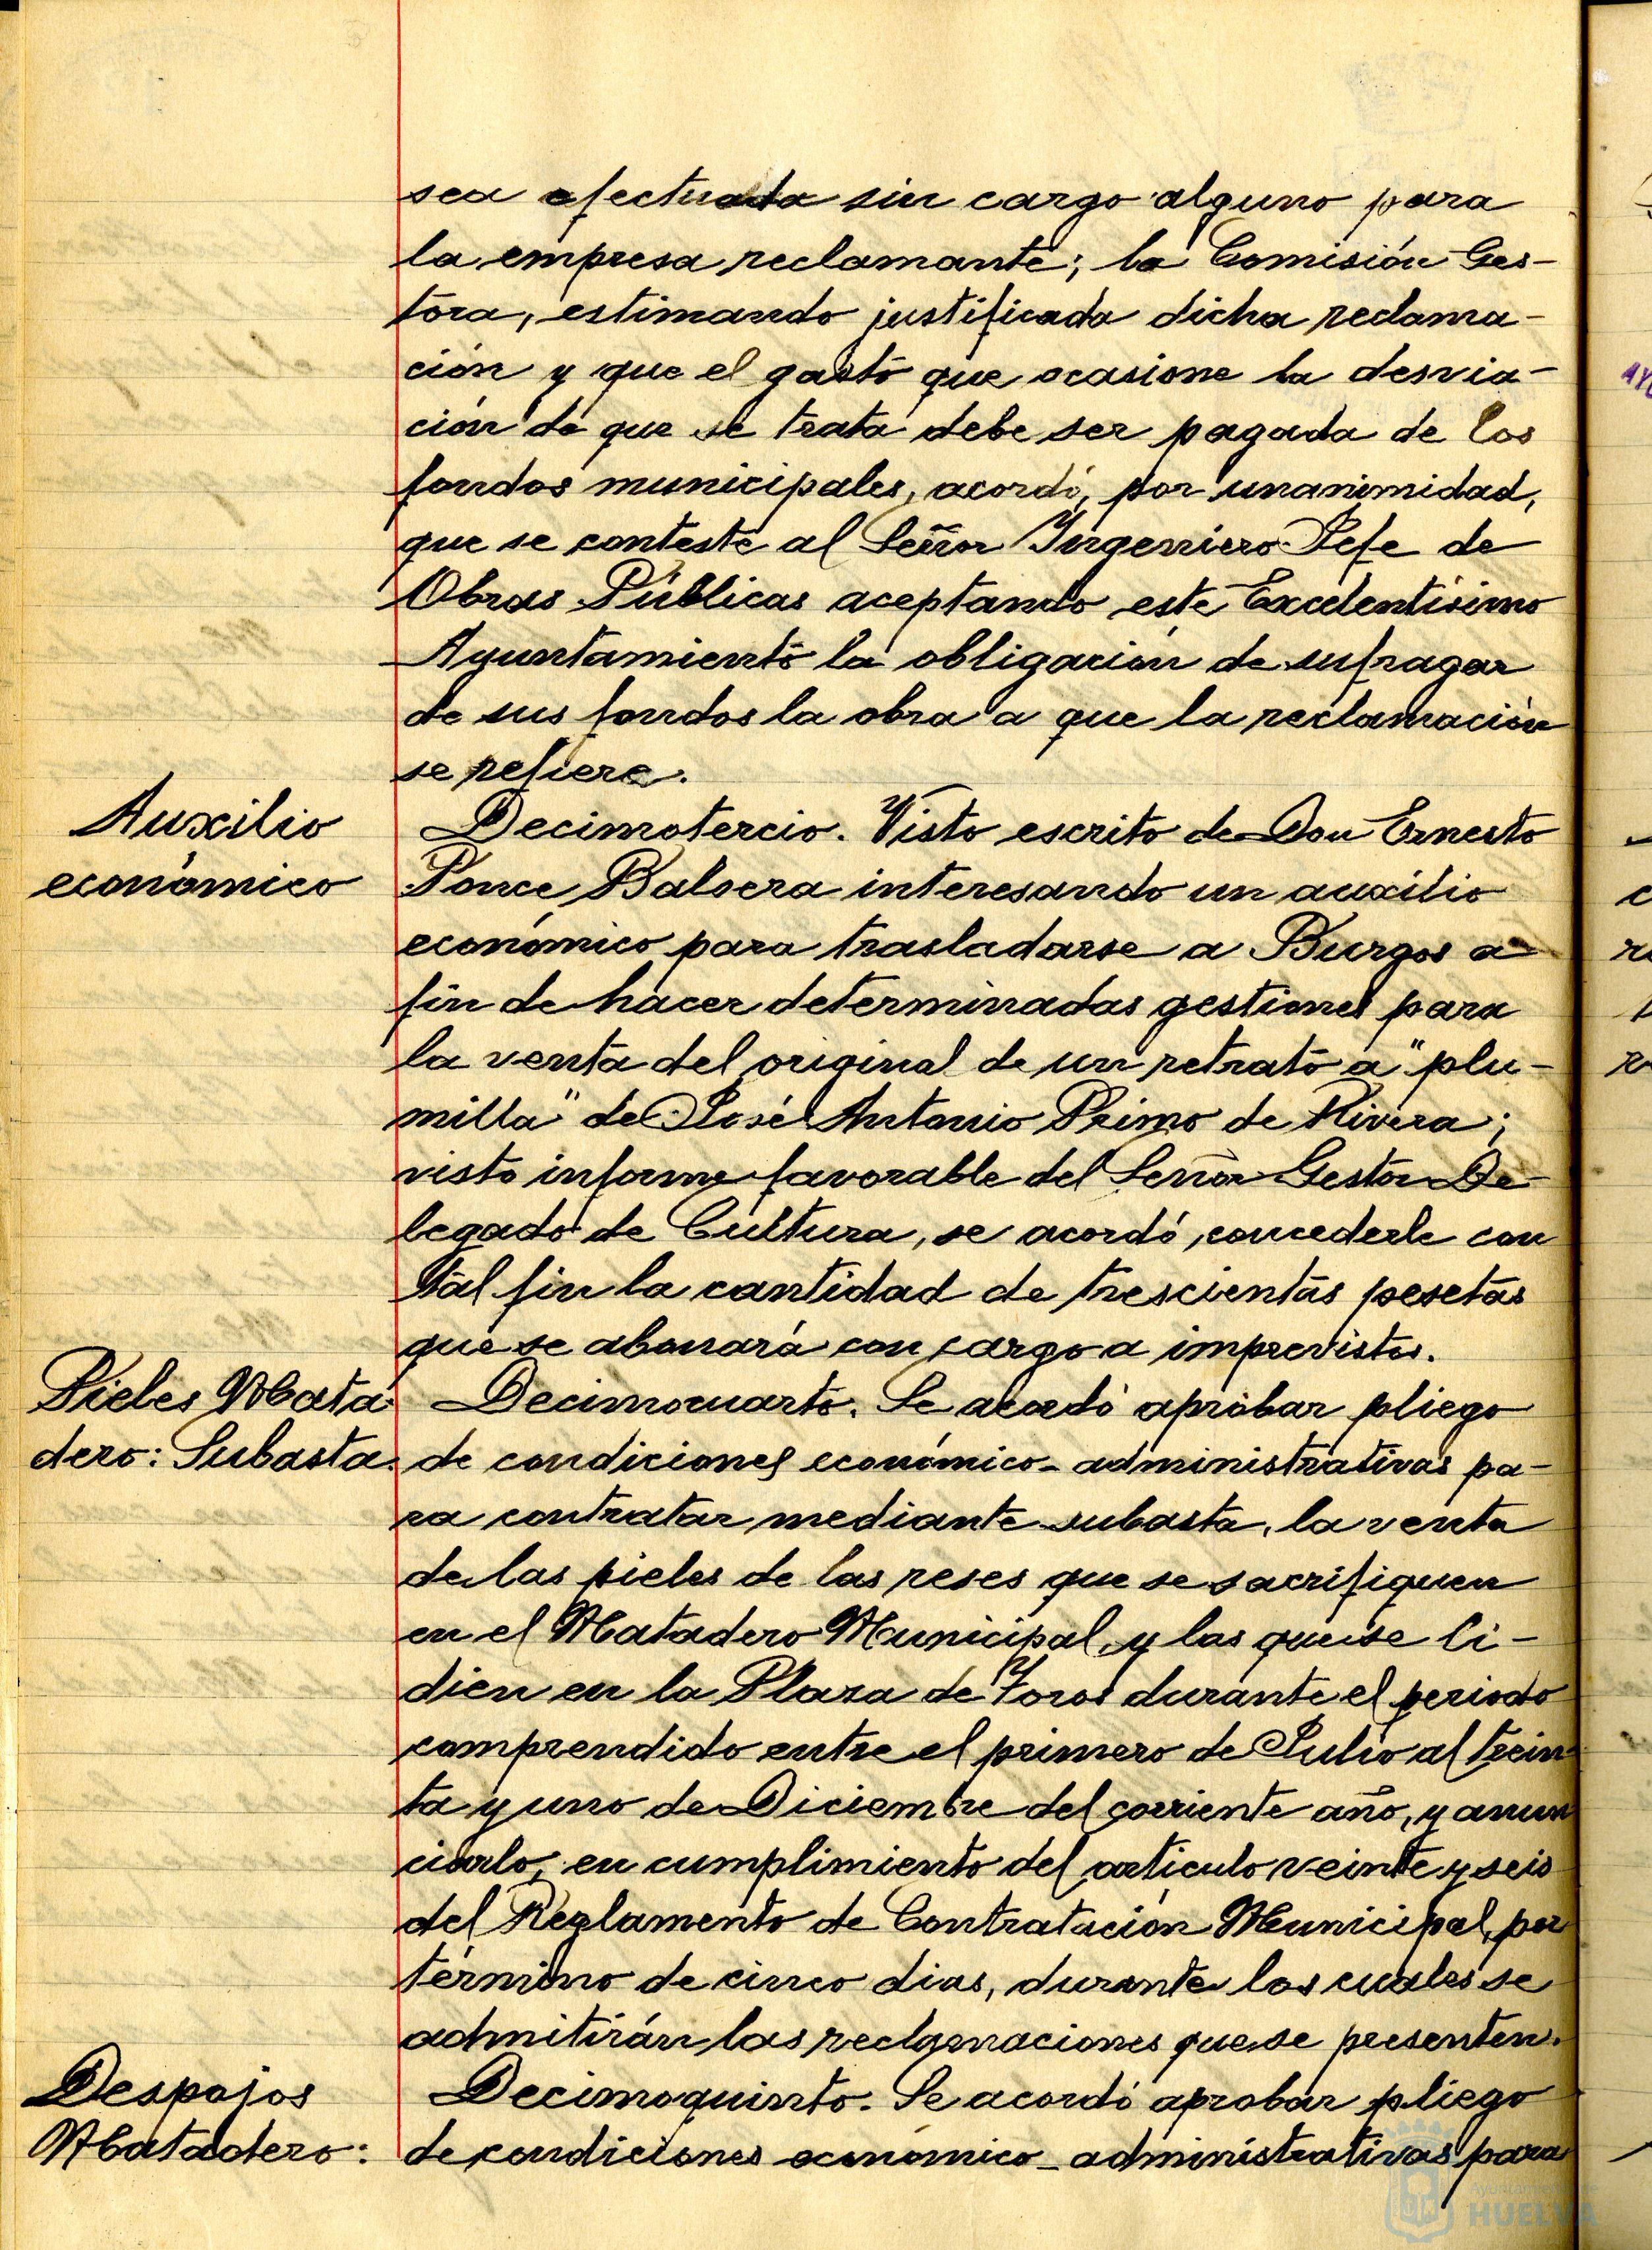 sea efectuada sin cargo alguno para
la empresa reclamante; la Comisión Ges-
tora, estimando justificada dicha reclama-
ción y que el gasto que ocasione la desvia-
ción de que se trata debe ser pagada de los
fondos municipales, acordó, por unanimidad,
que se conteste al Señor Ingeniero Jefe de
Obras Públicas aceptando este Excelentísimo
Ayuntamiento la obligación de sufragar
de sus fondos la obra a que la reclamación
se refiere.
Auxilio
económico
Decimotercio. Visto escrito de Don Ernesto
Ponce Balsera interesando un auxilio
económico para trasladarse a Burgos a
fin de hacer determinadas gestiones para
la venta del original de un retrato a "plu-
milla" de José Antonio Primo de Rivera;
visto informe favorable del Señor Gestor De-
legado de Cultura, se acordó, concederle con
tal fin la cantidad de trescientas pesetas
que se abonará con cargo a imprevistos.
Pieles Mata
dero: Subasta.
Decimocuarto. Se acordó aprobar pliego
de condiciones económico-administrativas pa-
ra contratar mediante subasta, la venta
de las pieles de las reses que se sacrifiquen
en el Matadero Municipal, y las que se li-
dien en la Plaza de Toros durante el periodo
comprendido entre el primero de Julio al trein-
ta y uno de Diciembre del corriente año, y anun
ciarlo, en cumplimiento del artículo veinte y seis
del Reglamento de Contratación Municipal, por
término de cinco dias, durante los cuales se
admitirán las reclamaciones que se presenten.
Despojos
Matadero:
Decimoquinto. Se acordó aprobar pliego
de condiciones económico-administrativas para
Ayuntamiento de
HUELVA